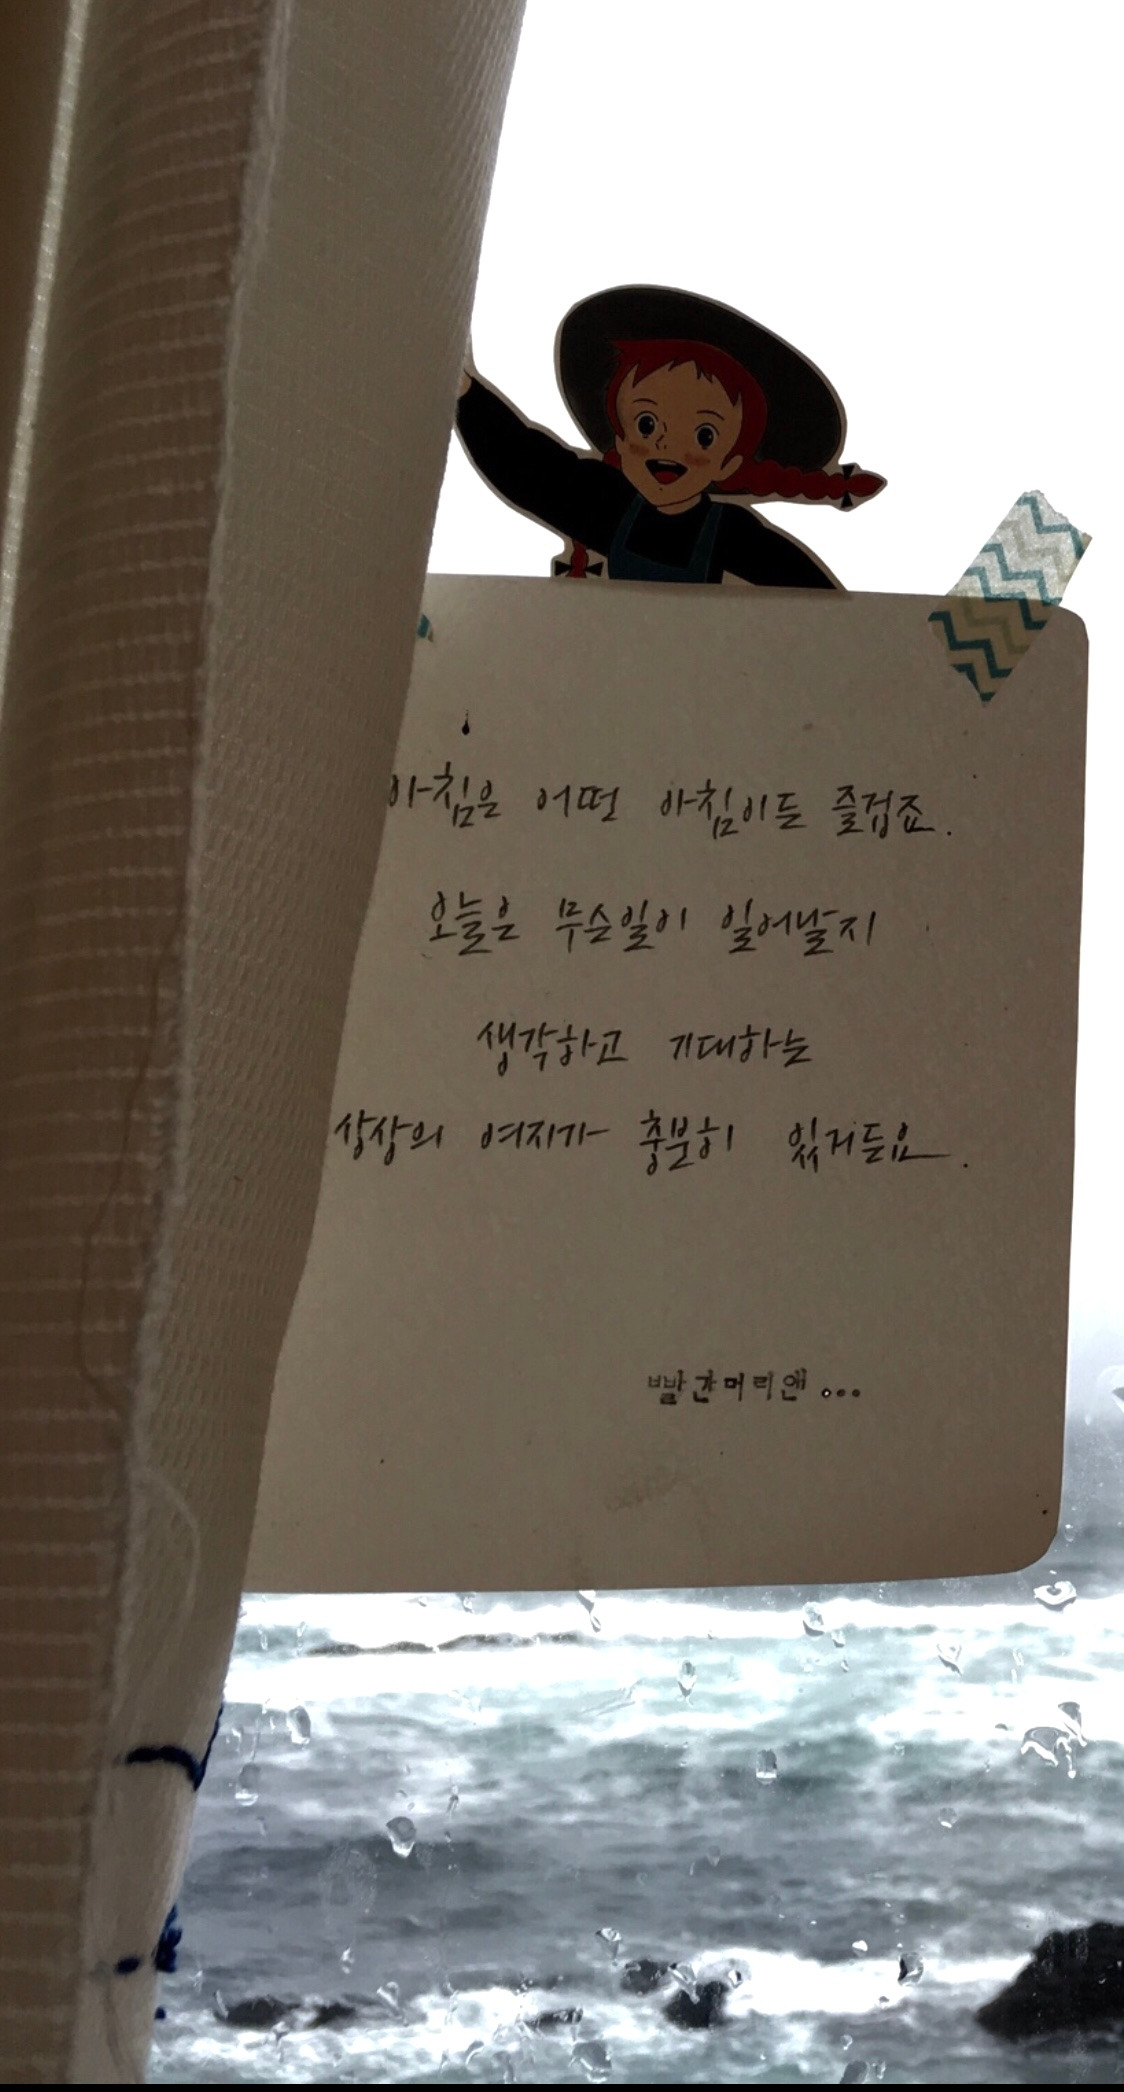 아침은 어떤 아침이든 즐겁죠.
오늘은 무슨일이 일어날지
생각하고 기대하는
상상의 여지가 충분히 있거든요.
빨간머리앤...